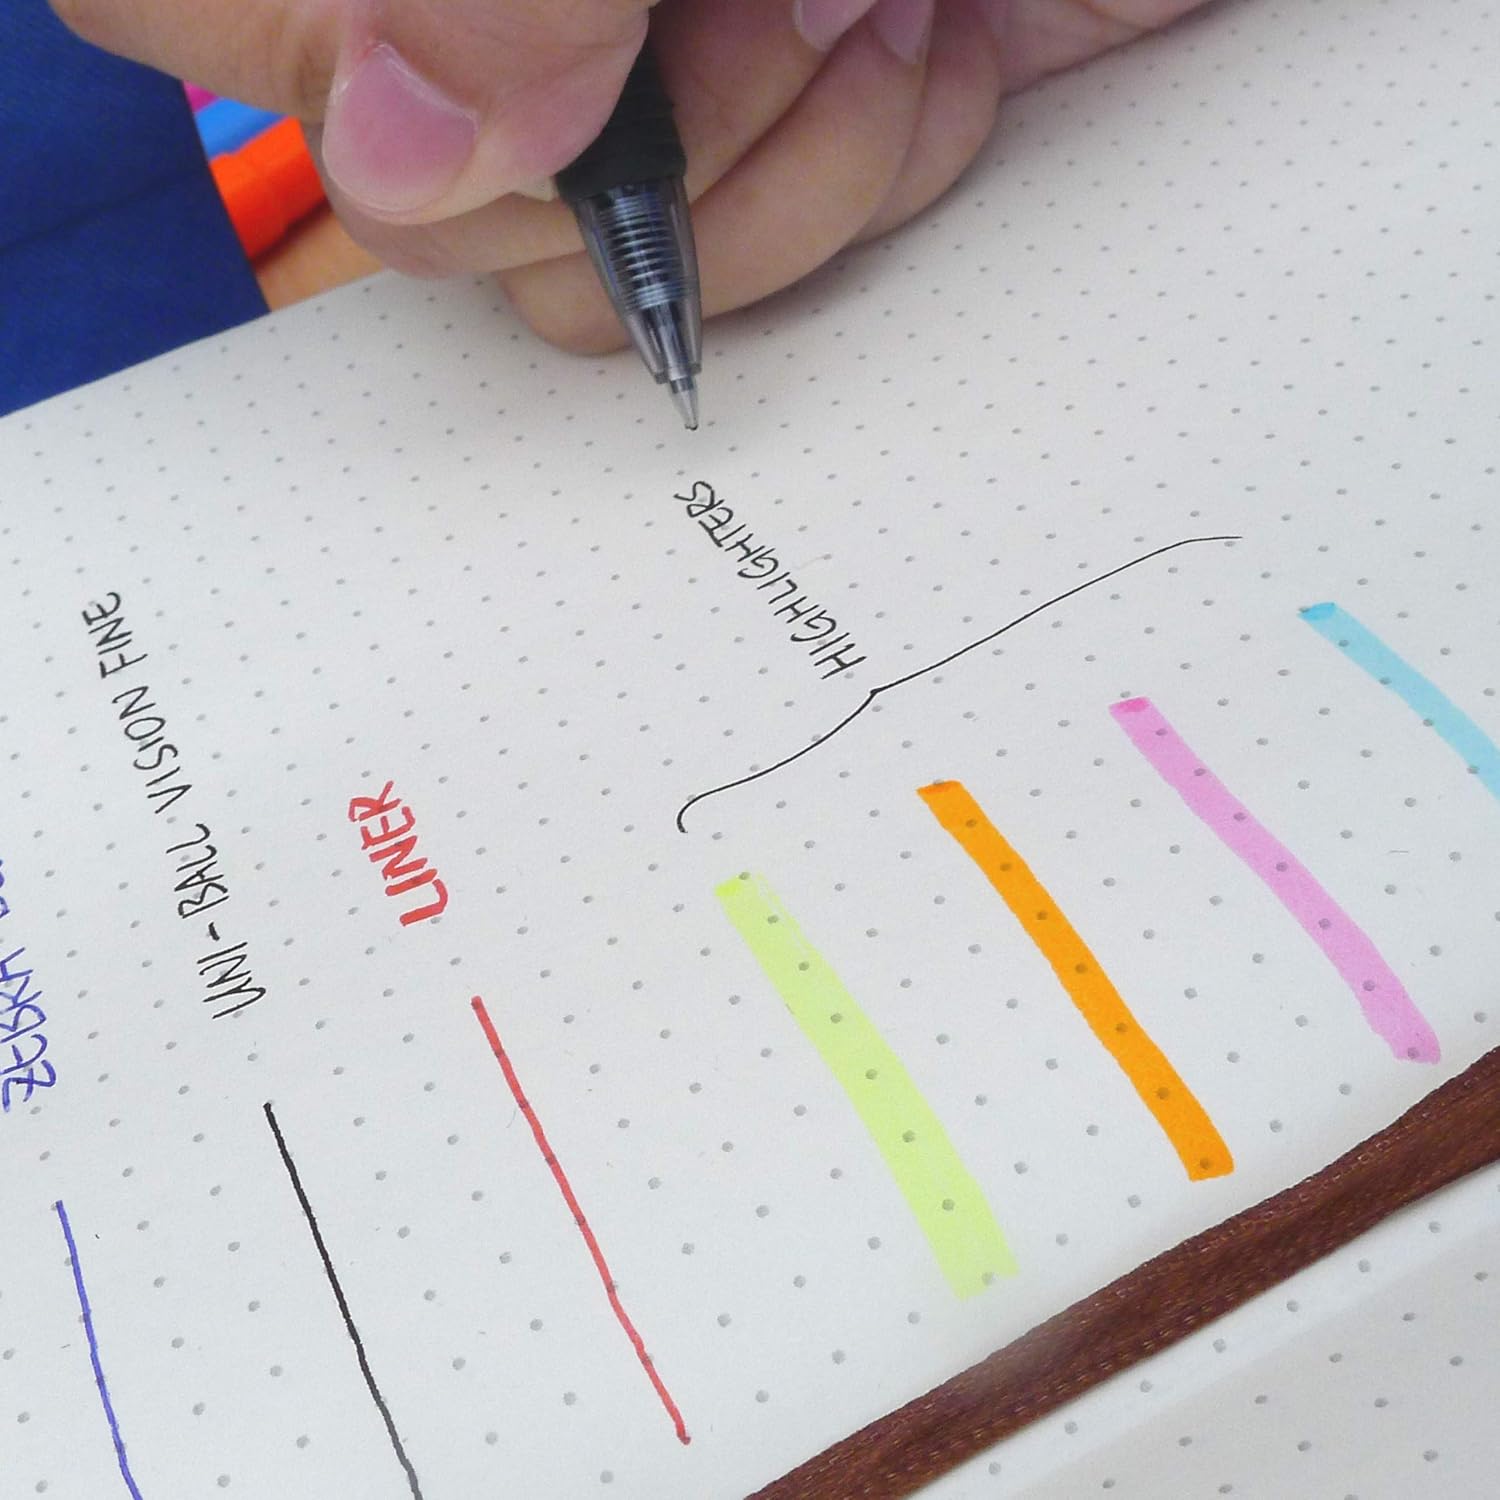 ZEBRA
UNI-BALL VISION FINE
LINER
HIGHLIGHTERS